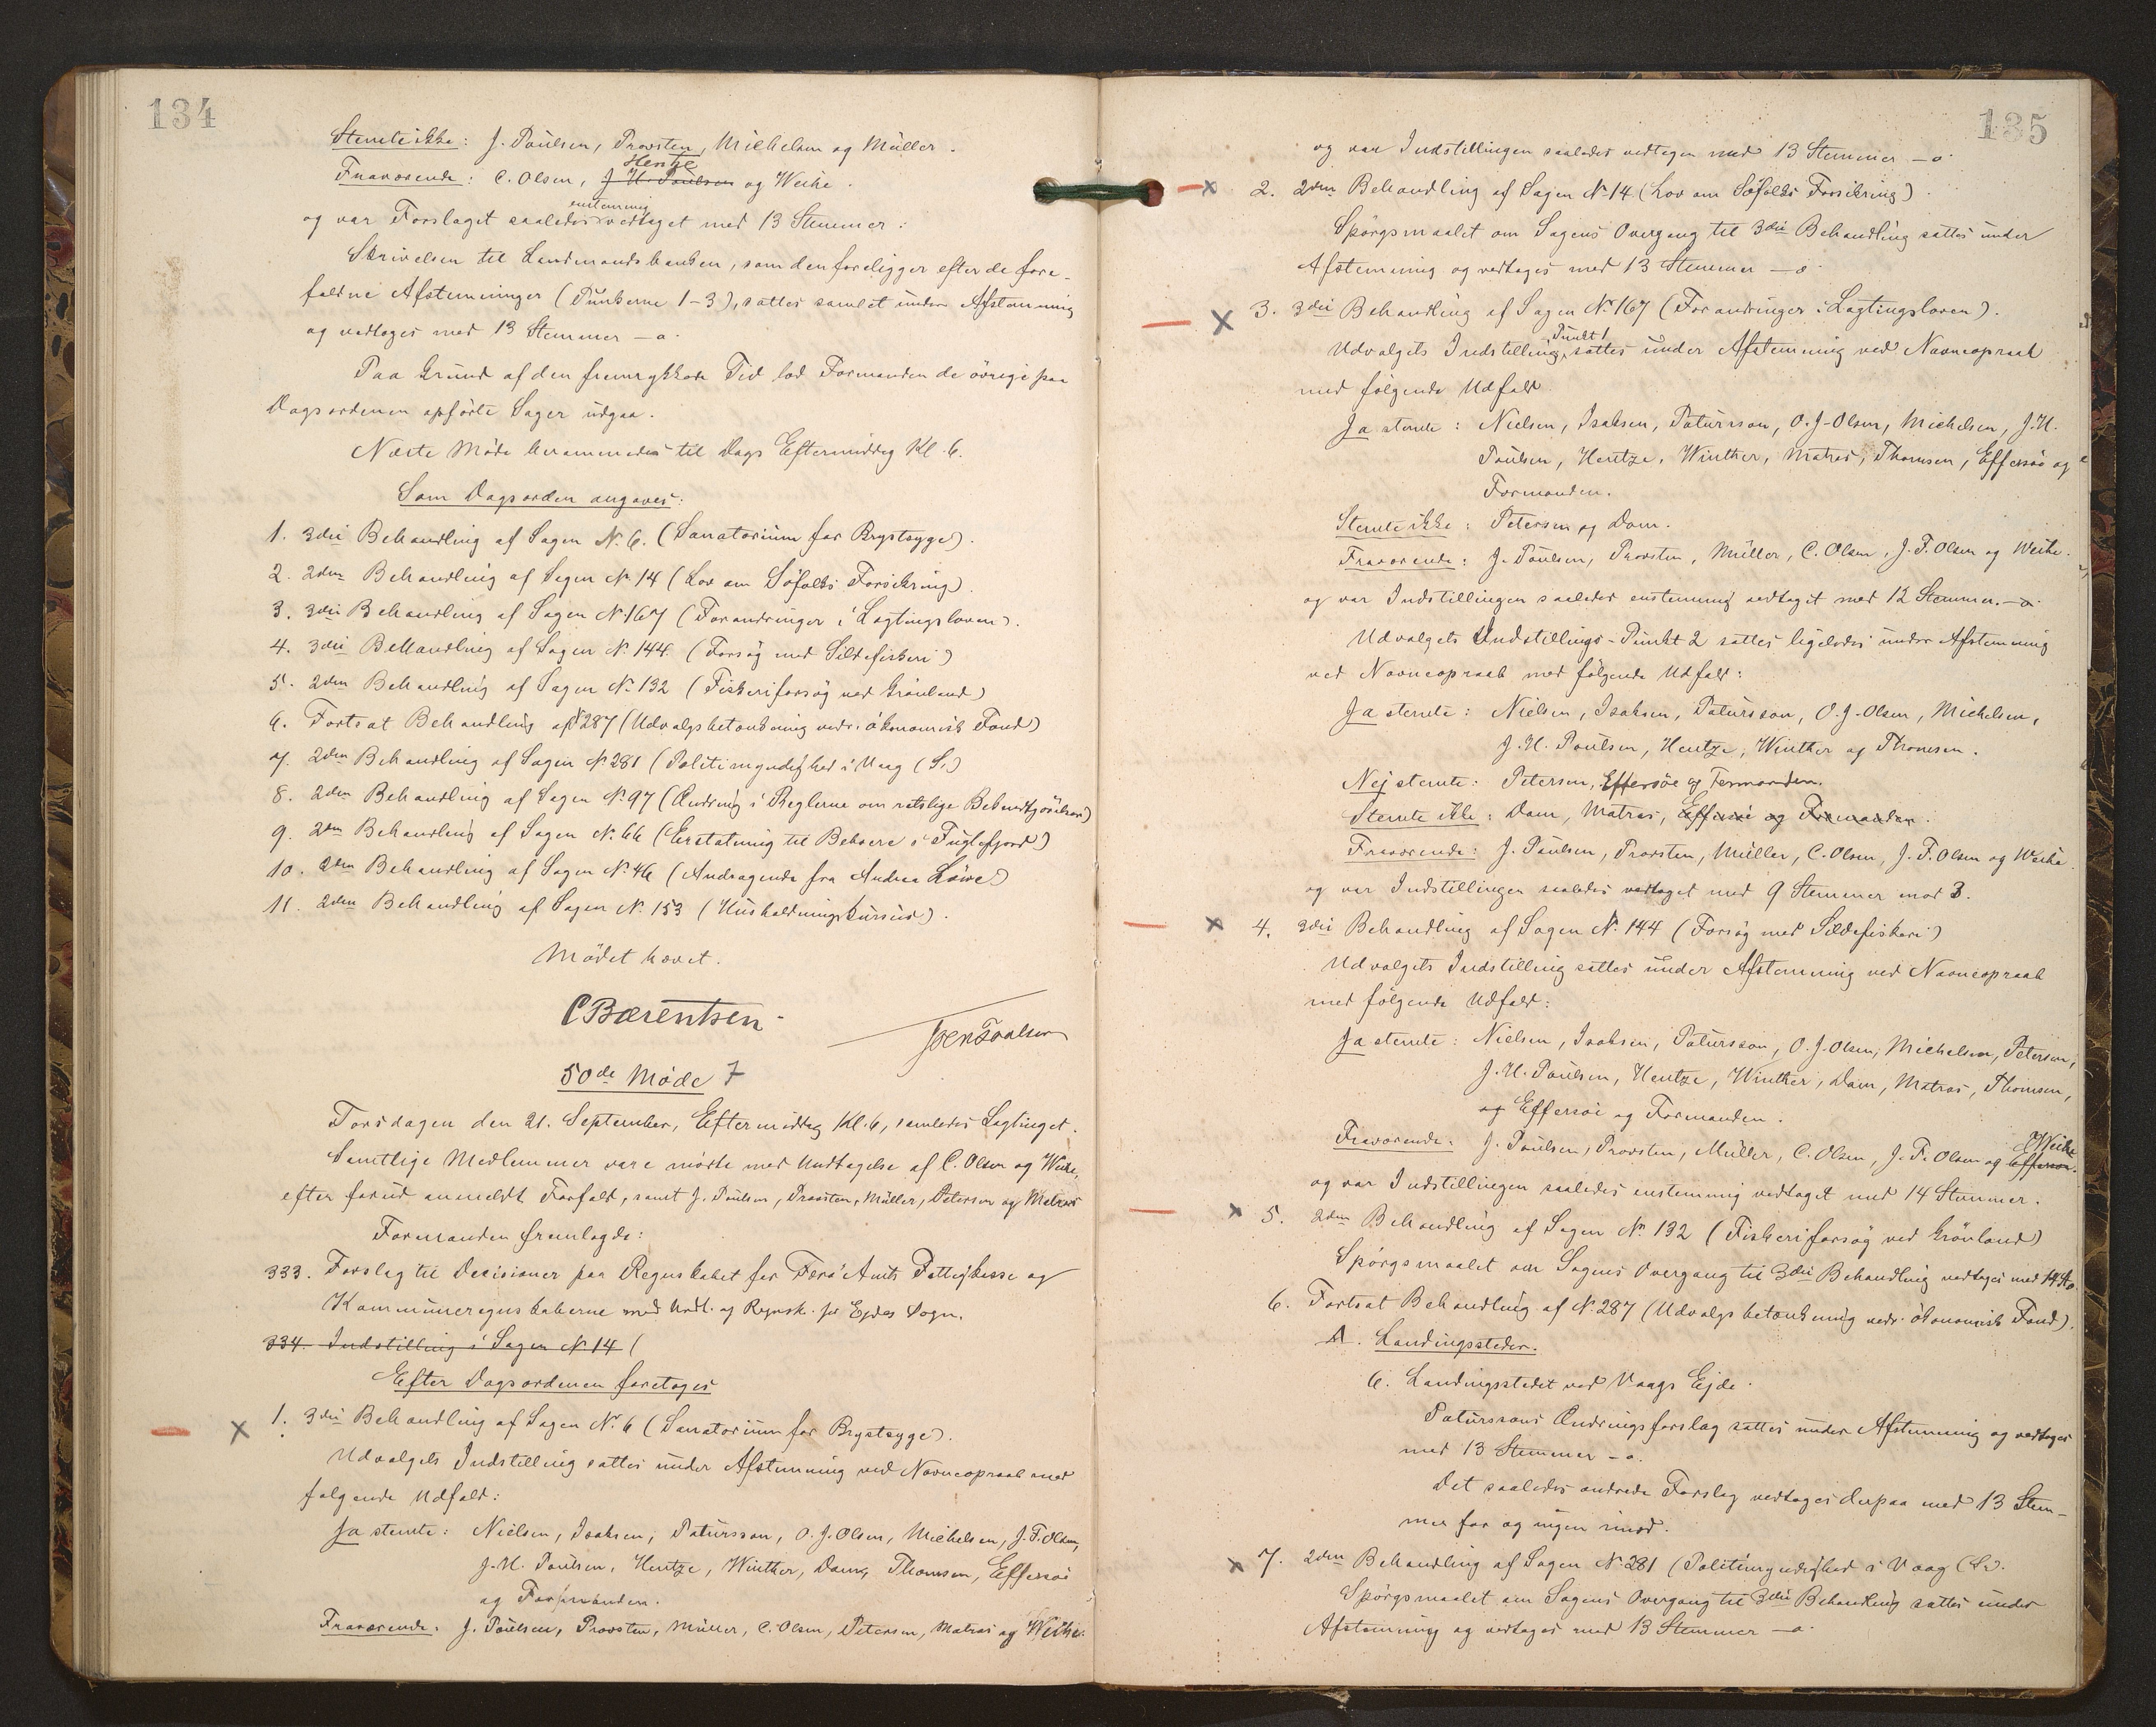 134
Stemte ikke: J. Poulsen, Provsten, Michelsen og Müller.
Hentze
Fraværende: C. Olsen, J. H. Poulsen og Weihe.
enstemmig
og var Forslaget saaledes vedtaget med 13 Stemmer:
Skrivelsen til Landmandsbanken, som den foreligger efter de fore-
faldne Afstemninger (Punkterne 1-3), sattes samlet under Afstemning
og vedtoges med 13 Stemmer - o.
Paa Grund af den fremrykkede Tid lod Formanden de övrige paa
Dagsordenen opförte Sager udgaa.
Næste Möde berammedes til Dags Eftermiddag Kl. 6.
Som Dagsorden angaves:
1. 3die Behandling af Sagen No 6. (Sanatorium for Brystsyge).
2. 2den Behandling af Sagen No 14 (Lov om Söfolks Forsikring).
3. 3die Behandling af Sagen No 167 (Forandringer i Lagtingsloven).
4. 3die Behandling af Sagen No 144. (Forsög med Sildefiskeri)
5. 2den Behandling af Sagen No 132 (Fiskeriforsög ved Grönland)
6. Fortsat Behandling af No 287 (Udvalgsbetænkning vedr. ökonomisk Fond)
7. 2den Behandling af Sagen No 281 (Politimyndighed i Vaag (S.)
8. 2den Behandling af Sagen No 97 (Ændring i Reglerne om retslige Bekendtgörelser)
9. 2den Behandling af Sagen No 66 (Erstatning til Beboere i Fuglefjord)
10. 2den Behandling af Sagen No 46 (Andragende fra Andrea Löwe)
11. 2den Behandling af Sagen No 153 (Husholdningskursus).
Mödet hævet.
C Bærentsen
Joen Poulsen
50de Möde 7
Torsdagen den 21. September, Eftermiddag Kl. 6, samledes Lagtinget.
Samtlige Medlemmer vare mödte med Undtagelse af C. Olsen og Weihe,
efter forud anmeldt Forfald, samt J. Poulsen, Provsten, Müller, Petersen og Matras
Formanden fremlagde:
333. Forslag til Decisioner paa Regnskabet for Færö Amts Fattigkasse og
Kommuneregnskaberne med Undt. af Regnsk. for Ejdes Sogn.
334. Indstilling i Sagen No 14 (
Efter Dagsordenen foretoges
1. 3die Behandling af Sagen No 6 (Sanatorium for Brystsyge).
Udvalgets Indstilling sattes under Afstemning ved Navneopraab med
følgende Udfald:
Ja stemte: Nielsen, Isaksen, Patursson, O. J. Olsen, Michelsen, J. F. Olsen,
J. H. Poulsen, Hentze, Winther, Dam, Thomsen, Effersöe
og Formanden.
Fraværende: J. Poulsen, Provsten, Müller, C. Olsen, Petersen, Matras og Weihe.
135
og var Indstillingen saaledes vedtagen med 13 Stemmer - o.
2. 2den Behandling af Sagen No 14 (Lov om Söfolks Forsikring).
Spörgsmaalet om Sagens Overgang til 3die Behandling sattes under
Afstemning og vedtoges med 13 Stemmer - o.
3. 3die Behandling af Sagen No 167 (Forandringer i Lagtingsloven).
Punkt 1
Udvalgets Indstilling, sattes under Afstemning ved Navneopraab
med fölgende Udfald
Ja stemte: Nielsen, Isaksen, Patursson, O. J. Olsen, Michelsen, J. H.
Poulsen, Hentze, Winther, Matras, Thomsen, Effersöe og
Formanden.
Stemte ikke: Petersen og Dam.
Fraværende: J. Poulsen, Provsten, Müller, C. Olsen, J. F. Olsen og Weihe.
og var Indstillingen saaledes enstemmig vedtaget med 12 Stemmer. - o.
Udvalgets Indstillings-Punkt 2 sattes ligeledes under Afstemning
ved Navneopraab med fölgende Udfald:
Ja stemte: Nielsen, Isaksen, Patursson, O. J. Olsen, Michelsen,
J. H. Poulsen, Hentze, Winther og Thomsen.
Nej stemte: Petersen, Effersöe og Formanden.
Stemte ikke: Dam, Matras, Effersöe og Formanden.
Fraværende: J. Poulsen, Provsten, Müller, C. Olsen, J. F. Olsen og Weihe.
og var Indstillingen saaledes vedtaget med 9 Stemmer mod 3.
4. 3die Behandling af Sagen No 144 (Forsög med Sildefiskeri)
Udvalgets Indstilling sattes under Afstemning ved Navneopraab
med fölgende Udfald:
Ja stemte: Nielsen, Isaksen, Patursson, O. J. Olsen, Michelsen, Petersen,
J. H. Poulsen, Hentze, Winther, Dam, Matras, Thomsen,
og Effersöe og Formanden.
Weihe
Fraværende: J. Poulsen, Provsten, Müller, C. Olsen, J. F. Olsen og Effersöe.
og var Indstillingen saaledes enstemmig vedtaget med 14 Stemmer.
5. 2den Behandling af Sagen No 132 (Fiskeriforsög ved Grönland)
Spörgsmaalet om Sagens Overgang til 3die Behandling vedtoges med 14 St.
6. Fortsat Behandling af No 287 (Udvalgsbetænkning vedr. ökonomisk Fond).
A. Landingssteder.
6. Landingsstedet ved Vaags Ejde.
Paturssons Ændringsforslag sattes under Afstemning og vedtoges
med 13 Stemmer - o.
Det saaledes ændrede Forslag vedtoges derpaa med 13 Stem-
mer for og ingen imod.
7. 2den Behandling af Sagen No 281 (Politimyndighed i Vaag (S.).
Spörgsmaalet om Sagens Overgang til 3die Behandling sattes under
Afstemning og vedtoges med 13 Stemmer - o.